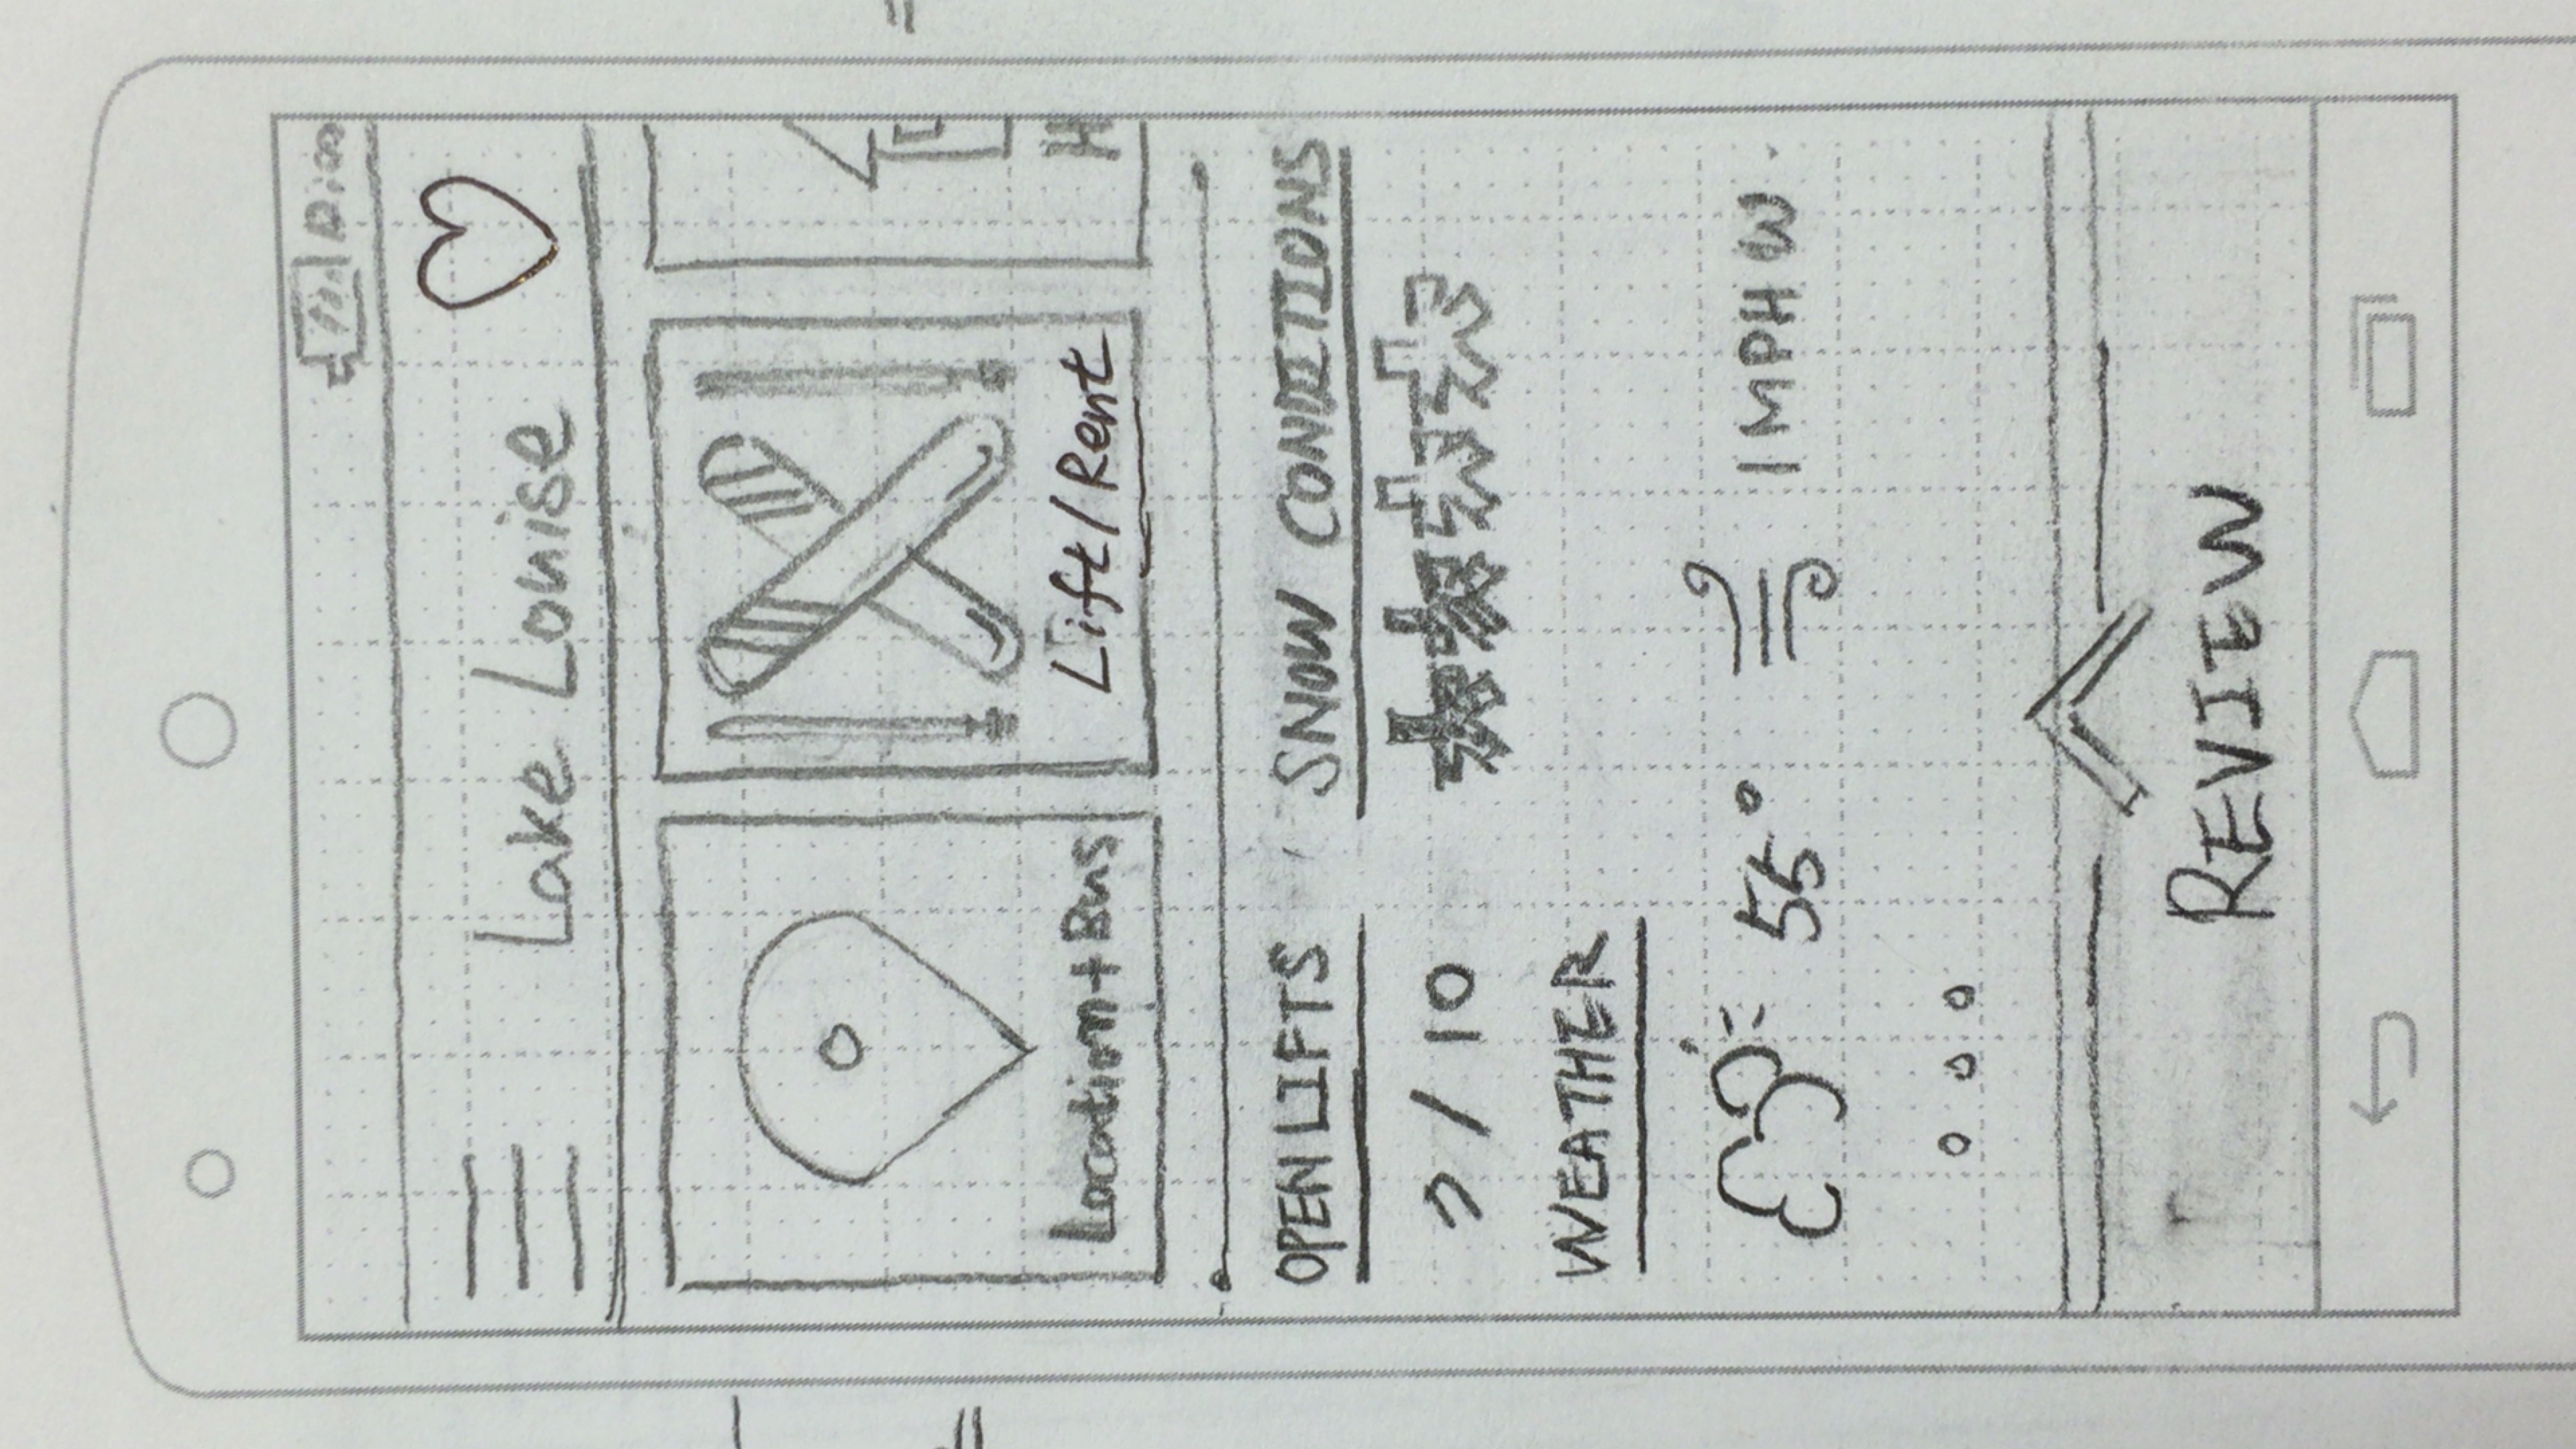 Lake Louise
Location + Bus
Lift/Rent
H
OPEN LIFTS
SNOW CONDITIONS
/ 10
WEATHER
55°
1 MPH W
REVIEW